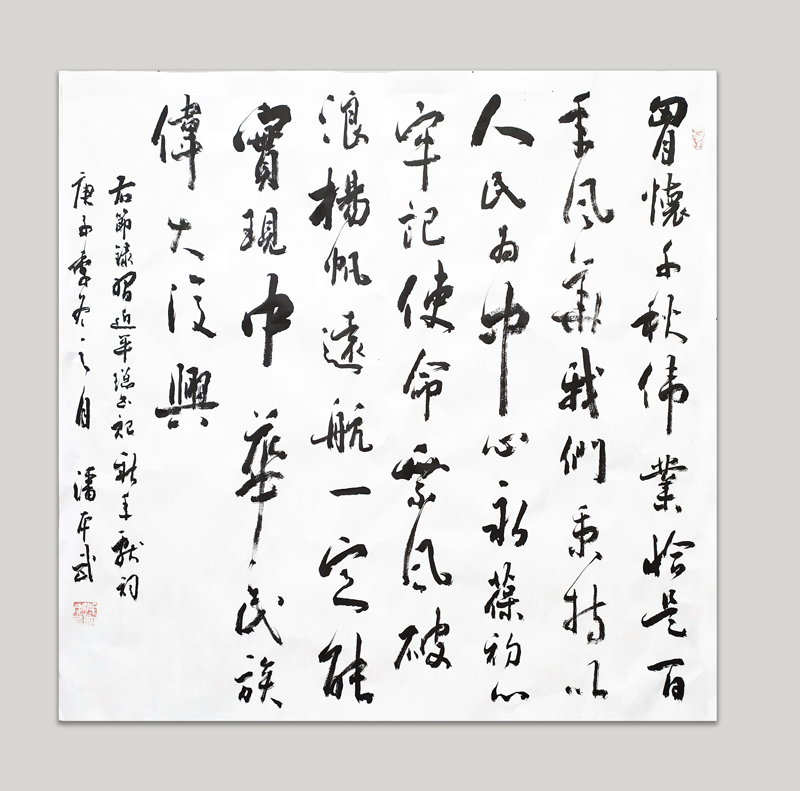 胷懷千秋伟業恰是百
年風華我們秉持以
人民为中心永葆初心
牢記使命乘風破
浪揚帆遠航一定能
實現中華民族
偉大復興
右節録習近平總书記新年獻词
庚子季冬之月 潘武